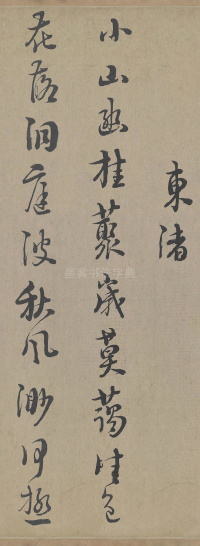 東渚
小山幽桂叢歲莫藹佳色
花落洞庭波秋風渺何極